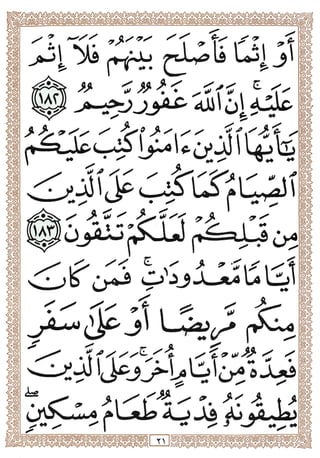 أَوْ إِثْمًا فَأَصْلَحَ بَيْنَهُمْ فَلَآ إِثْمَ
عَلَيْهِ ۚ إِنَّ ٱللَّهَ غَفُورٌ رَّحِيمٌ ١٨٢
يَٰٓأَيُّهَا ٱلَّذِينَ ءَامَنُوا۟ كُتِبَ عَلَيْكُمُ
ٱلصِّيَامُ كَمَا كُتِبَ عَلَى ٱلَّذِينَ
مِن قَبْلِكُمْ لَعَلَّكُمْ تَتَّقُونَ ١٨٣
أَيَّامًا مَّعْدُودَٰتٍ ۚ فَمَن كَانَ
مِنكُم مَّرِيضًا أَوْ عَلَىٰ سَفَرٍ
فَعِدَّةٌ مِّنْ أَيَّامٍ أُخَرَ ۚ وَعَلَى ٱلَّذِينَ
يُطِيقُونَهُۥ فِدْيَةٌ طَعَامُ مِسْكِينٍ ۖ
٢١